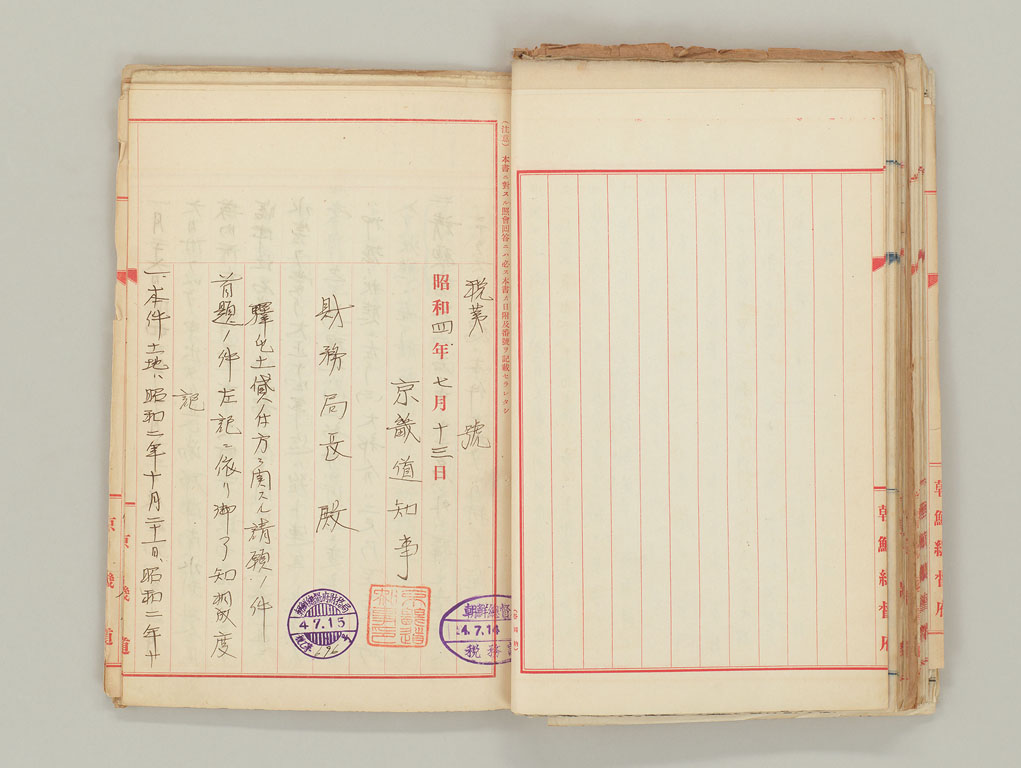 朝鮮總督府
(注意) 本書ニ對スル照會回答ニハ必ス本書ノ日附及番號ヲ記載セラレタシ
税第 號
昭和四年七月十三日
京畿道知事
京畿道知事印
財務局長殿
驛屯土貸付方ニ関スル請願ノ件
首題ノ件左記ニ依リ御了知相成度
記
一、本件土地ハ昭和二年十月二十一日、昭和二年十
朝鮮總督
4.7.14
税務
4.7.15
京畿道